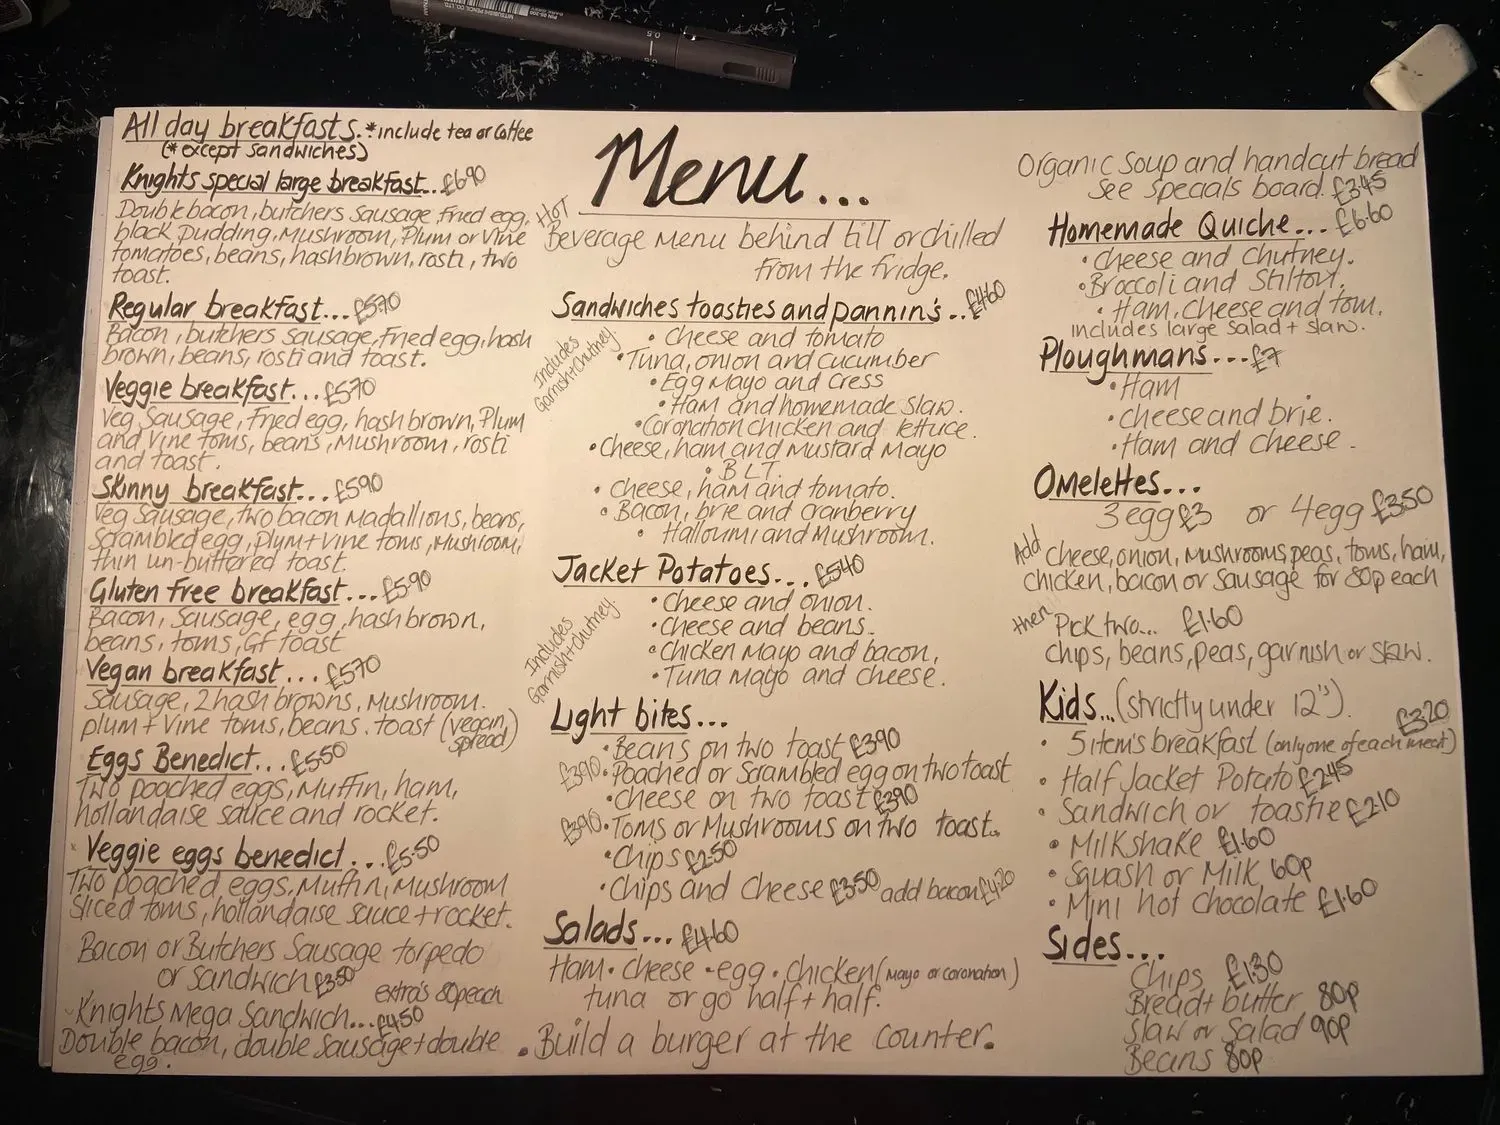 All day breakfasts. *include tea or coffee
(*except sandwiches)
Knights special large breakfast.. £6.90
Double bacon, butchers sausage, fried egg,
black pudding, mushroom, Plum or vine
tomatoes, beans, hashbrown, rosti, two
toast.
Regular breakfast... £5.70
Bacon, butchers sausage, fried egg, hash
brown, beans, rosti and toast.
Veggie breakfast... £5.70
Veg sausage, fried egg, hash brown, Plum
and vine toms, beans, mushroom, rosti
and toast.
Skinny breakfast... £5.90
Veg sausage, two bacon madallions, beans,
Scrambled egg, plum + vine toms, mushroom,
thin un-buttered toast.
Gluten free breakfast... £5.90
Bacon, Sausage, egg, hash brown,
beans, toms, GF toast
Vegan breakfast... £5.70
Sausage, 2 hash browns, mushroom.
plum + vine toms, beans. toast (vegan
spread)
Eggs Benedict... £5.50
Two poached eggs, muffin, ham,
hollandaise sauce and rocket.
Veggie eggs benedict... £5.50
Two poached eggs, muffin, mushroom
sliced toms, hollandaise sauce + rocket.
Bacon or Butchers Sausage torpedo
or sandwich £3.50
extra's 80p each
Knights Mega Sandwich... £4.50
Double bacon, double sausage + double
egg.
Menu...
Hot
Beverage menu behind till or chilled
from the fridge.
Sandwiches toasties and pannini's... £4.60
Includes
Garnish + Chutney.
• Cheese and tomato
• Tuna, onion and cucumber
• Egg mayo and cress
• Ham and homemade slaw.
• Coronation chicken and lettuce.
• Cheese, ham and mustard mayo
• B.L.T.
• Cheese, ham and tomato.
• Bacon, brie and cranberry
• Halloumi and mushroom.
Jacket Potatoes... £5.40
Includes
Garnish + Chutney.
• Cheese and onion.
• Cheese and beans.
• Chicken mayo and bacon,
• Tuna mayo and cheese.
Light bites...
• Beans on two toast £3.90
£3.90 • Poached or scrambled egg on two toast
• Cheese on two toast £3.90
£3.90 • Toms or mushrooms on two toast..
• Chips £2.50
• Chips and Cheese £3.50 add bacon £4.20
Salads... £4.60
Ham • cheese • egg • chicken (mayo or coronation)
tuna or go half + half.
• Build a burger at the counter.
Organic soup and handcut bread
see specials board. £3.45
Homemade Quiche... £6.60
• Cheese and chutney.
• Broccoli and Stilton.
• Ham, cheese and tom.
Includes large salad + slaw.
Ploughmans... £7
• Ham
• cheese and brie.
• Ham and cheese.
Omelettes...
3 egg £3 or 4 egg £3.50
Add cheese, onion, mushrooms, peas, toms, ham,
chicken, bacon or sausage for 80p each
then Pick two... £1.60
chips, beans, peas, garnish or slaw.
Kids... (strictly under 12's).
£3.20
• 5 item's breakfast (only one of each meat)
• Half Jacket Potato £2.45
• Sandwich or toastie £2.10
• Milkshake £1.60
• Squash or Milk 60p
• Mini hot chocolate £1.60
Sides...
Chips £1.30
Bread + butter 80p
Slaw or salad 90p
Beans 80p